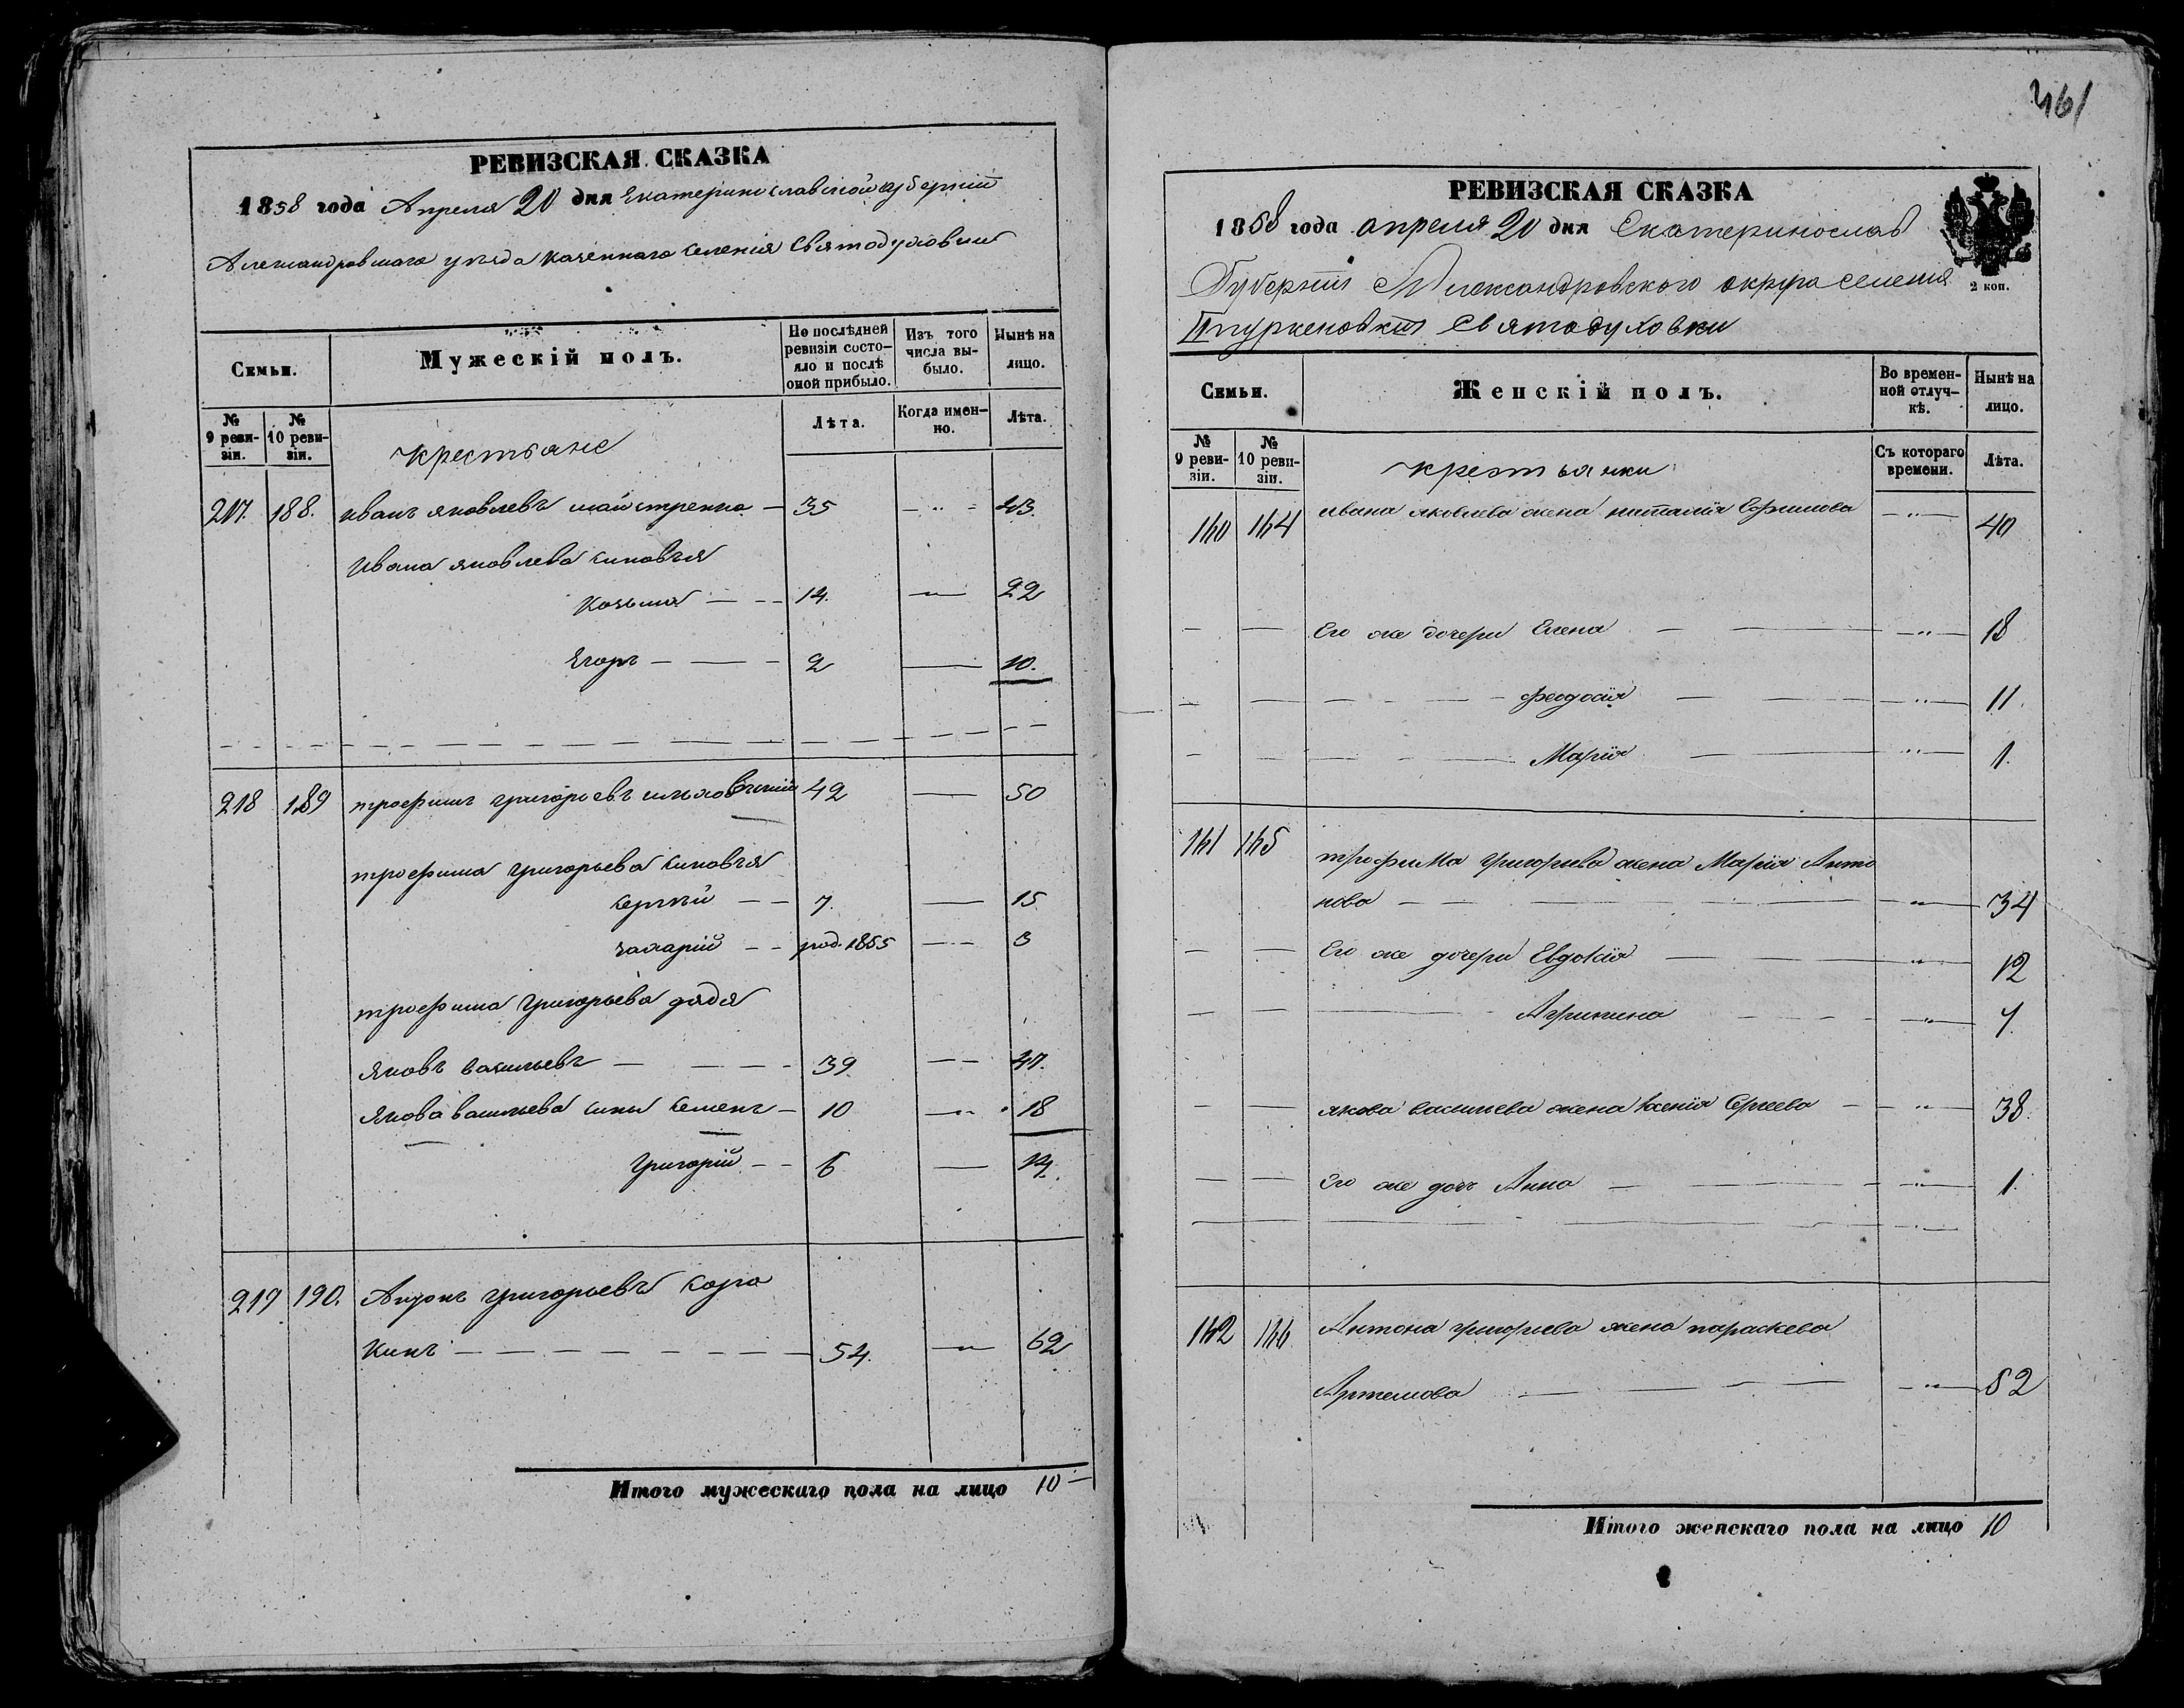 РЕВИЗСКАЯ СКАЗКА
1858 года Апреля 20 дня Екатеринославской губернии
Александровскаго уезда казеннаго селения Святодуховки
Семьи.
Мужескій полъ.
По послѣдней ревизіи состояло и послѣ оной прибыло.
Изъ того числа выбыло.
Нынѣ на лицо.
№ 9 ревизіи.
№ 10 ревизіи.
крестьяне
Лѣта.
Когда именно.
Лѣта.
217. 188. иванъ яковлевъ майстренко — 35 — 43.
Ивана яковлева синовья
Козьма — — 14. — 22
Егоръ — — — 2 — 10.
218 189 трофимъ григорьевъ 42 — 50
трофима григорьева синовья
сергѣй — — 7. — 15
захарій — — род. 1855 — 3
трофима григорьева дядя
яковъ васильевъ — — — — 39. — — 47.
якова васильева сины семенъ — 10 — 18
григорій — — 6 — 14.
219 190. Антонъ григорьевъ
кинъ — — — — — — — 54. — 62
Итого мужескаго пола на лицо 10 —
461
РЕВИЗСКАЯ СКАЗКА
1858 года апреля 20 дня Екатеринослав
Губерніи Александровского округа селения
Святодуховки
2 коп.
Семьи.
Женскій полъ.
Во временной отлучкѣ.
Нынѣ на лицо.
№ 9 ревизіи.
№ 10 ревизіи.
крестьянки
Съ котораго времени.
Лѣта.
140 144 ивана яковлева жена наталія Ефимова — „ — 40
— — Его же дочери Елена — — — „ — 18
— — — — — феодосія — — — „ — 11.
— — — — — Марія — — — „ — 1.
141 145 трофима григориева жена Марія Анто
нова — — — — — „ — 34
— — Его же дочери Евдокія — — — „ — 12
— — — — Агрипина — — — — „ — 7.
— — якова василиева жена ксенія Сергеева — — „ — 38.
— — Его же дочъ Анна — — — — „ — 1.
142 146. Антона григориева жена параскева
Артемова — — — — — „ — 52
Итого женскаго пола на лицо 10